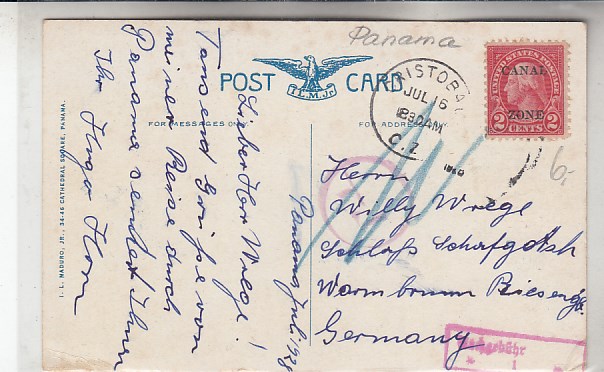 Panama
POST CARD
I.L.M.Jr.
FOR MESSAGES ONLY
FOR ADDRESS
CRISTOBAL
JUL 16
8 30 AM
C.Z.
UNITED STATES POSTAGE
CANAL
ZONE
2 CENTS 2
6,-
Panama, Juli 1928
Lieber Herr Wrege!
Tausend Grüsse von
meiner Reise durch
Panama sendet Ihnen
Ihr Hugo Horn
Herrn
Willy Wrege
Schloß Schafgotsch
Warmbrunn Riesengb.
Germany
I. L. MADURO, JR., 34-46 CATHEDRAL SQUARE, PANAMA.